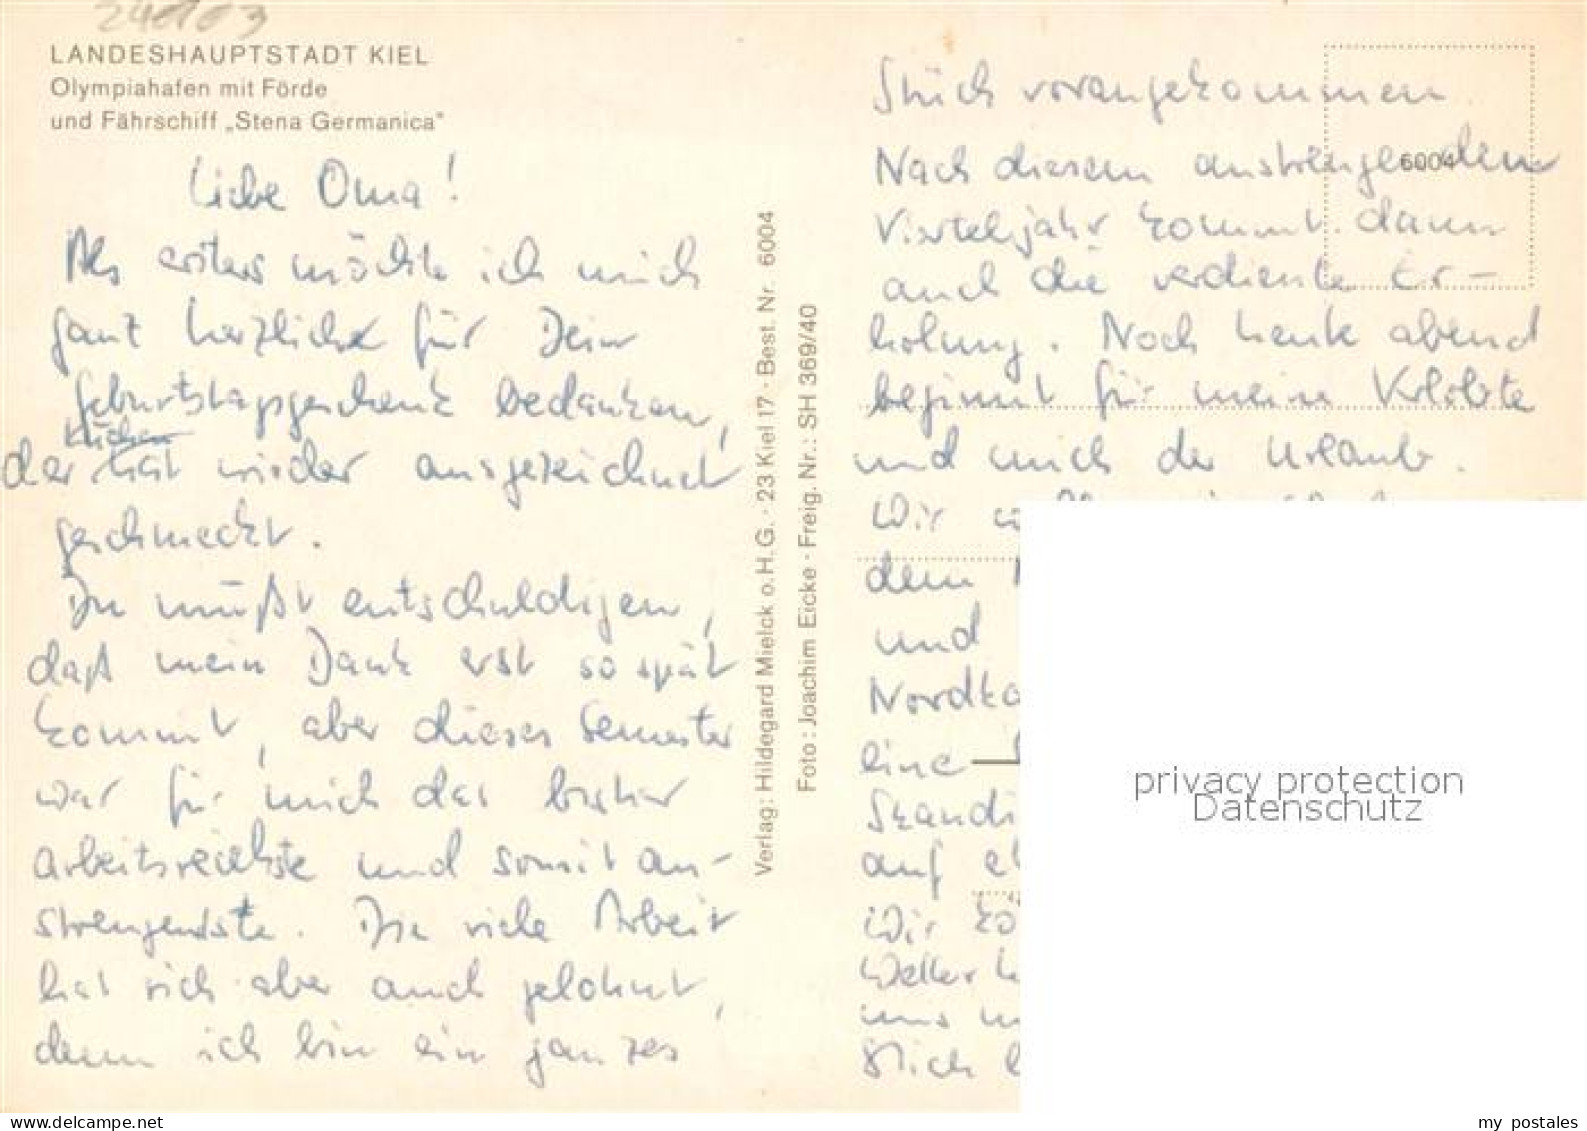 240103
LANDESHAUPTSTADT KIEL
Olympiahafen mit Förde
und Fährschiff „Stena Germanica"
Liebe Oma!
Als erstes möchte ich mich
ganz herzlichst für Dein
Geburtstagsgeschenk bedanken,
Kuchen
der hat wieder ausgezeichnet
geschmeckt.
Du mußt entschuldigen,
daß mein Dank erst so spät
kommt, aber dieses Semester
war für mich das bisher
arbeitsreichste und somit an-
strengendste. Die viele Arbeit
hat sich aber auch gelohnt,
denn ich bin ein ganzes
Verlag: Hildegard Mielck o.H.G. · 23 Kiel 17 · Best. Nr. 6004
Foto: Joachim Eicke · Freig. Nr.: SH 369/40
Stück vorangekommen.
6004
Nach diesem anstrengenden
Vierteljahr kommt dann
auch die verdiente Er-
holung. Noch heute abend
beginnt für meine Verlobte
und mich der Urlaub.
Wir
dem
und
Nordka
eine
Skandi
auf
Wir kö
Wetter
uns
Stich
privacy protection
Datenschutz
www.delcampe.net
my_postales